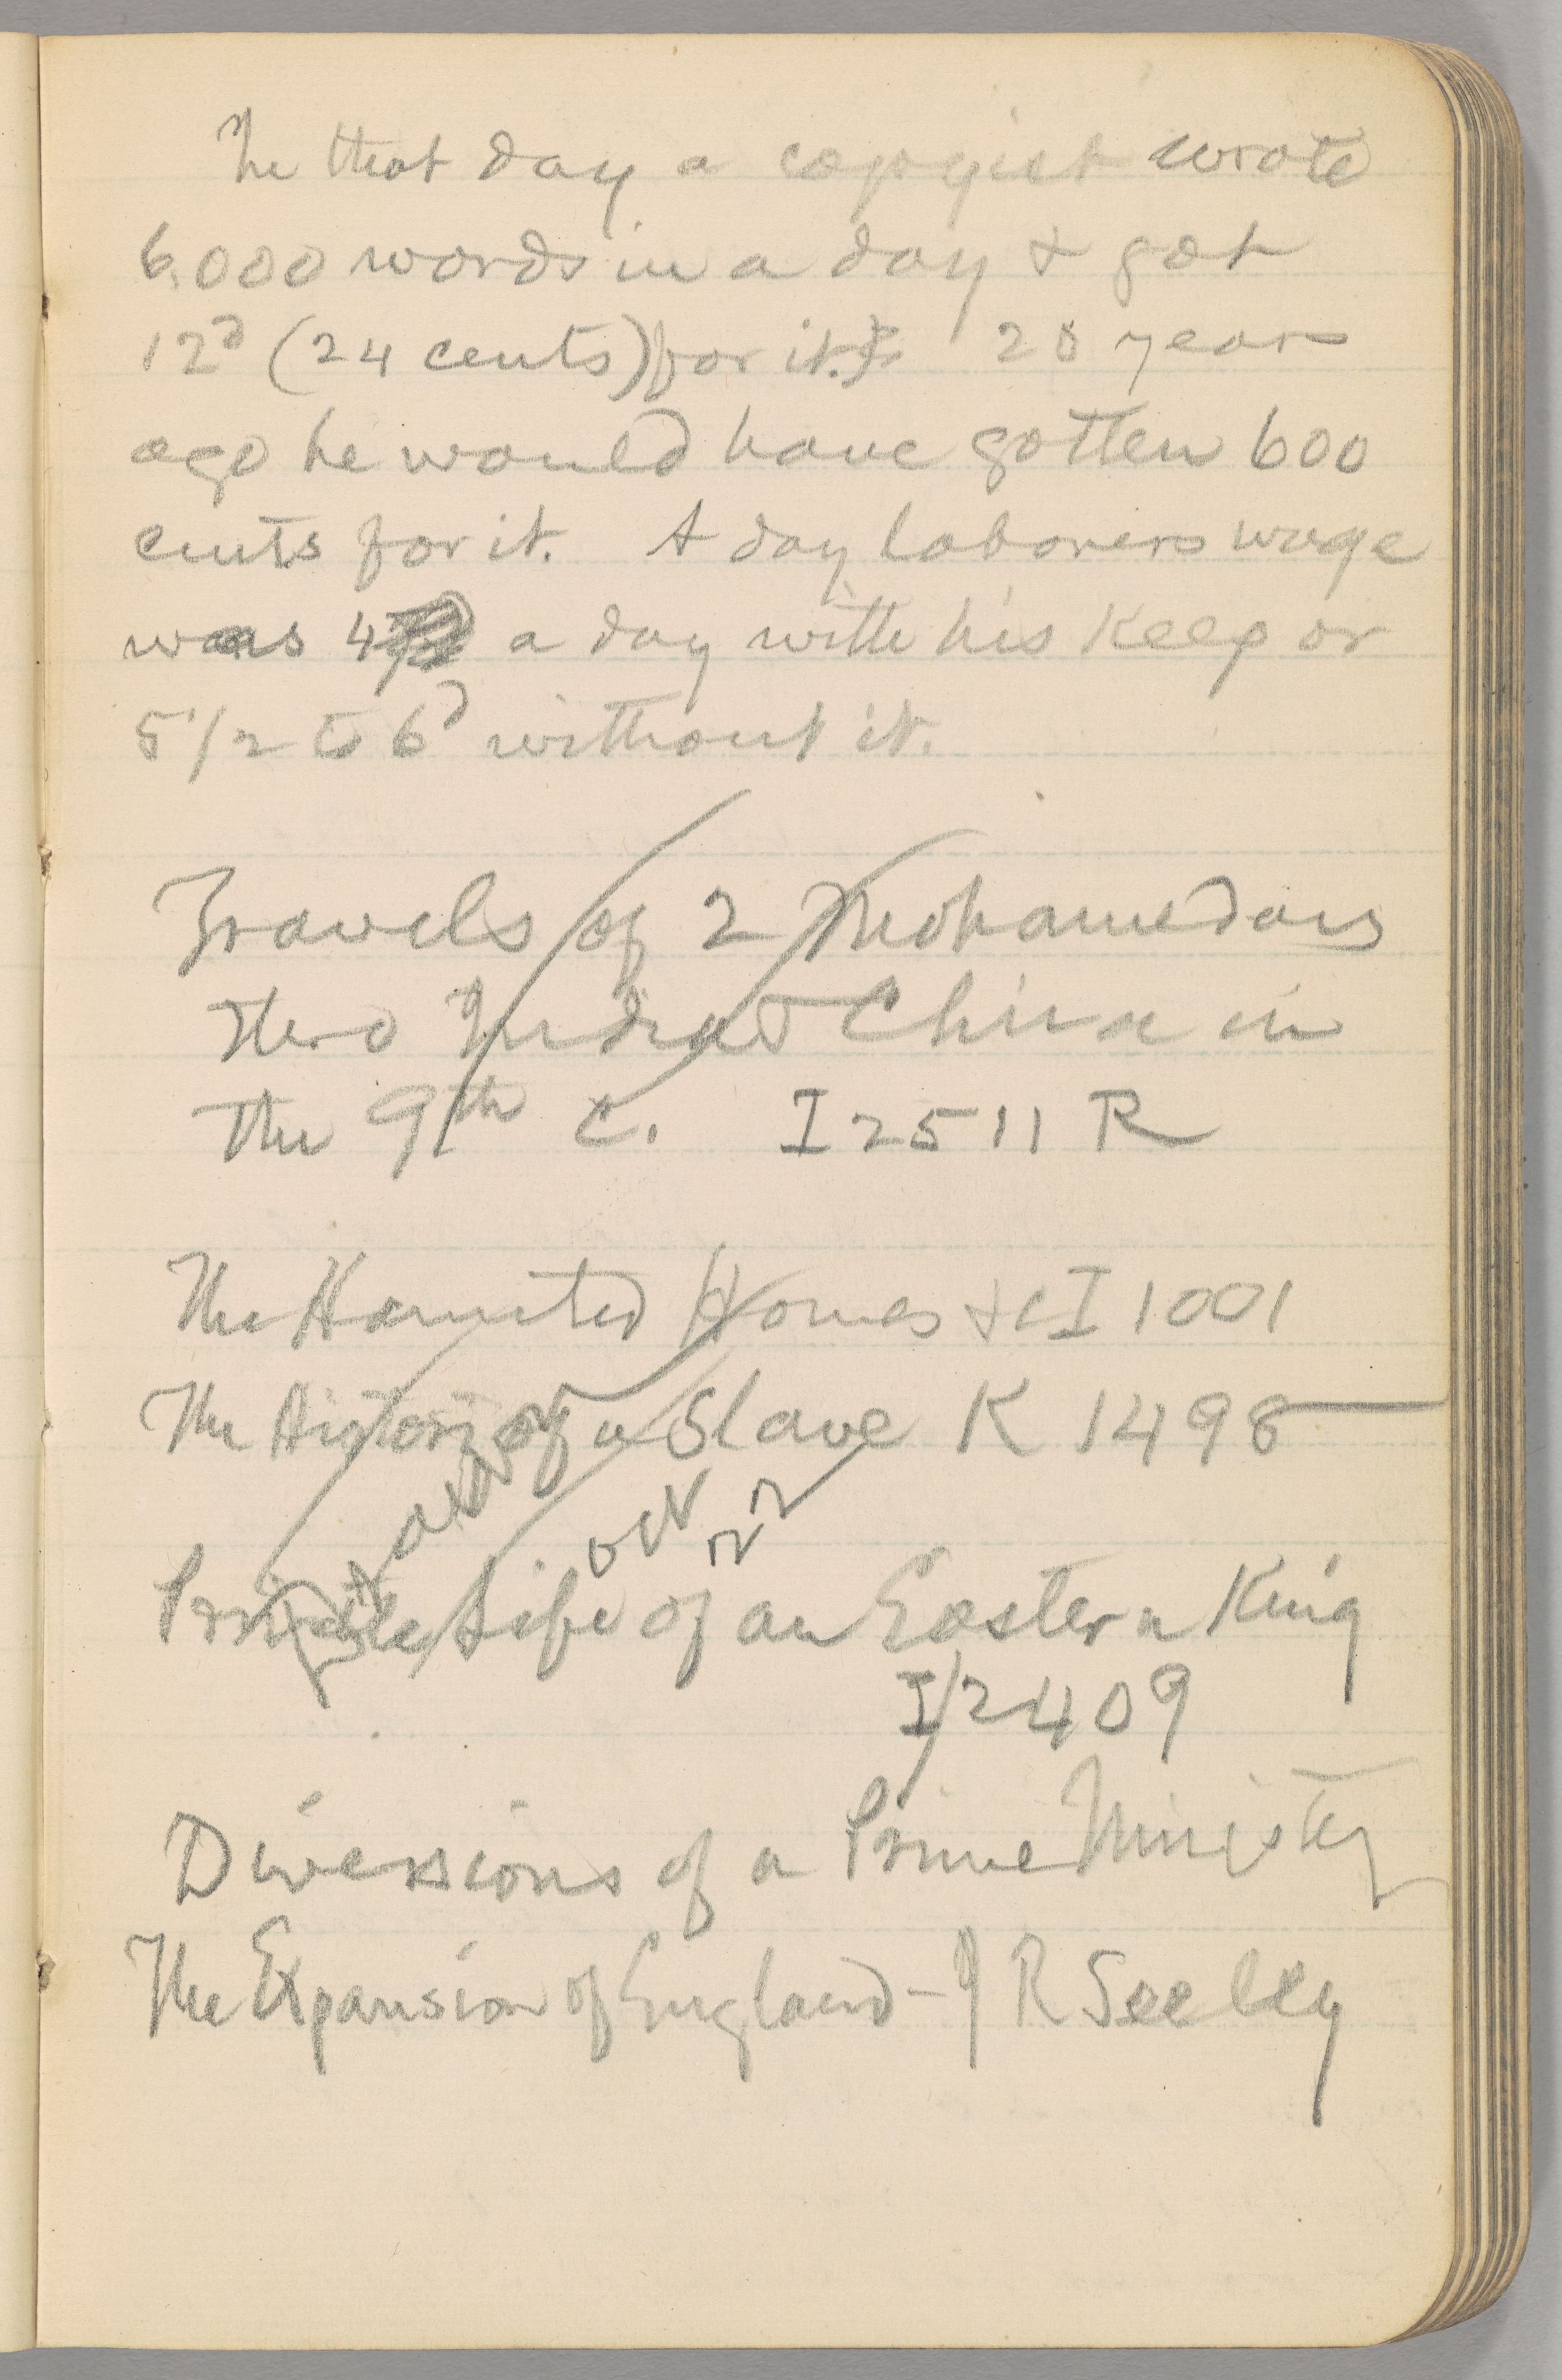 In that day a copyist wrote
6,000 words in a day & got
12d (24 cents) for it. 28 years
ago he would have gotten 600
cents for it. A day laborers wage
was 4 a day with his keep or
5 1/2 to 6d without it.
Travels of 2 Mohamedans
thro India & China in
the 9th C. I 2511 R
The Haunted Homes &c I 1001
The History of a Slave K 1498
Private Life of an Eastern King
I 2409
Diversions of a Prime Minister
The Expansion of England - J R Seeley